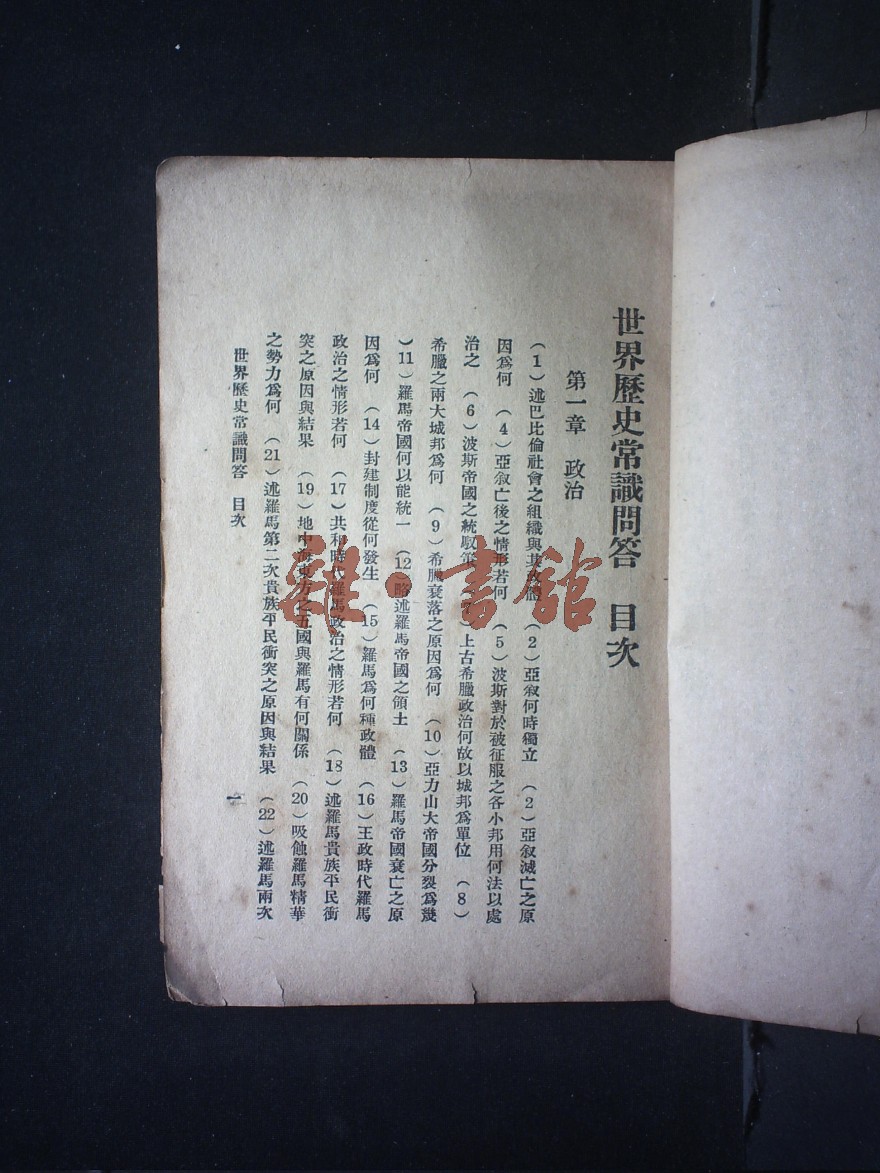 世界歷史常識問答　目次
第一章　政治
（1）述巴比倫社會之組織與其政體　（2）亞叙何時獨立　（2）亞叙滅亡之原
因爲何　（4）亞叙亡後之情形若何　（5）波斯對於被征服之各小邦用何法以處
治之　（6）波斯帝國之統馭策　（7）上古希臘政治何故以城邦爲單位　（8）
希臘之兩大城邦爲何　（9）希臘衰落之原因爲何　（10）亞力山大帝國分裂爲幾
）11）羅馬帝國何以能統一　（12）略述羅馬帝國之領土　（13）羅馬帝國衰亡之原
因爲何　（14）封建制度從何發生　（15）羅馬爲何種政體　（16）王政時代羅馬
政治之情形若何　（17）共和時代羅馬政治之情形若何　（18）述羅馬貴族平民衝
突之原因與結果　（19）地中海東方之五國與羅馬有何關係　（20）吸蝕羅馬精華
之勢力爲何　（21）述羅馬第二次貴族平民衝突之原因與結果　（22）述羅馬兩次
世界歷史常識問答　目次
一
雜·書館